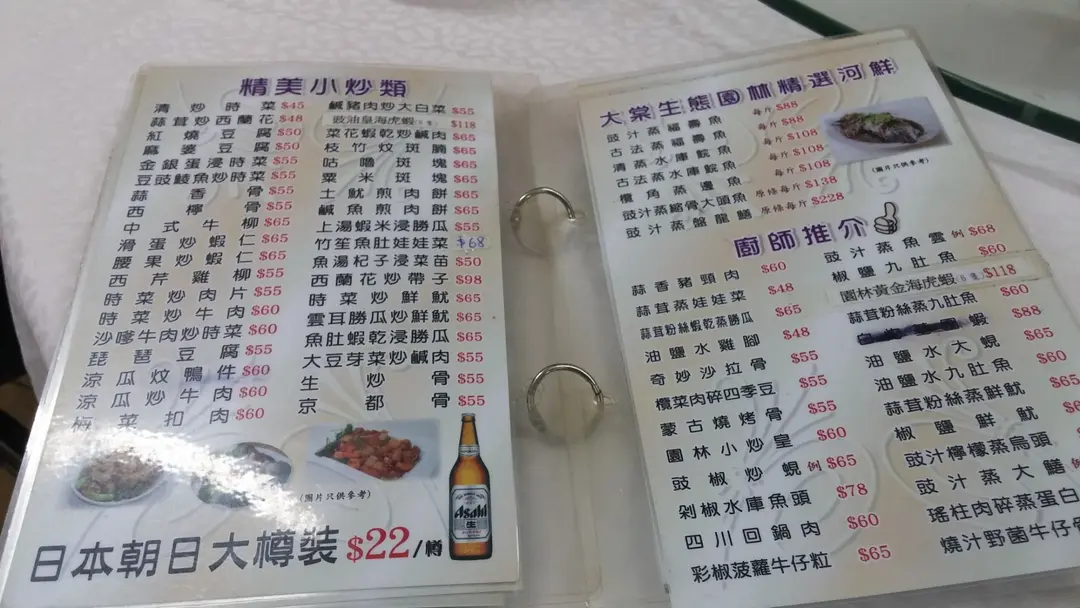 精美小炒類
清炒時菜 $45
蒜茸炒西蘭花 $48
紅燒豆腐 $50
麻婆豆腐 $50
金銀蛋浸時菜 $55
豆豉鯪魚炒時菜 $55
蒜香骨 $55
西檸骨 $55
中式牛柳 $65
滑蛋炒蝦仁 $65
腰果炒蝦仁 $65
西芹雞柳 $55
時菜炒肉片 $55
時菜炒牛肉 $60
沙嗲牛肉炒時菜 $60
琵琶豆腐 $55
涼瓜炆鴨件 $60
涼瓜炒牛肉 $60
梅菜扣肉 $60
鹹豬肉炒大白菜 $55
豉油皇海虎蝦 $118
菜花蝦乾炒鹹肉 $65
枝竹炆斑腩 $65
咕嚕斑塊 $65
粟米斑塊 $65
土魷煎肉餅 $65
鹹魚煎肉餅 $65
上湯蝦米浸勝瓜 $55
竹笙魚肚娃娃菜 $68
魚湯杞子浸菜苗 $50
西蘭花炒帶子 $98
時菜炒鮮魷 $65
雲耳勝瓜炒鮮魷 $65
魚肚蝦乾浸勝瓜 $65
大豆芽菜炒鹹肉 $55
生炒骨 $55
京都骨 $55
(圖片只供參考)
Asahi
生
日本朝日大樽裝 $22/樽
大棠生態園林精選河鮮
豉汁蒸福壽魚 每斤 $88
古法蒸福壽魚 每斤 $88
清蒸水庫鯇魚 每斤 $108
古法蒸水庫鯇魚 每斤 $108
欖角蒸邊魚 每斤 $108
豉汁蒸縮骨大頭魚 原條每斤 $138
豉汁蒸盤龍鱔 原條每斤 $228
(圖片只供參考)
廚師推介
蒜香豬頸肉 $60
蒜茸蒸娃娃菜 $48
蒜茸粉絲蝦乾蒸勝瓜 $65
油鹽水雞腳 $48
奇妙沙拉骨 $55
欖菜肉碎四季豆 $55
蒙古燒烤骨 $55
園林小炒皇 $60
豉椒炒蜆 例 $65
剁椒水庫魚頭 $78
四川回鍋肉 $60
彩椒菠蘿牛仔粒 $65
豉汁蒸魚雲 例 $68
椒鹽九肚魚 $60
園林黃金海虎蝦 $118
蒜茸粉絲蒸九肚魚 $60
蝦 $88
油鹽水大蜆 $65
油鹽水九肚魚 $60
蒜茸粉絲蒸鮮魷 $65
椒鹽鮮魷
豉汁檸檬蒸烏頭
豉汁蒸大鱔 例
瑤柱肉碎蒸蛋白
燒汁野菌牛仔